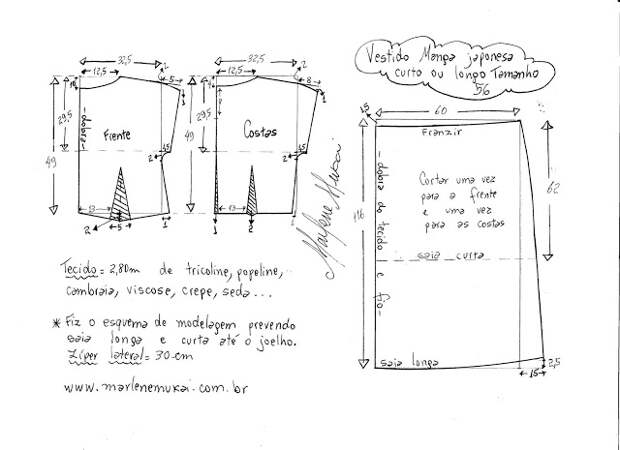 Vestido Manga japonesa
curto ou longo Tamanho
56
32,5
2
12,5
5
7
1
29,5
49
-dobra-
Frente
1,5
2
13
2
5
1
32,5
2
12,5
8
1
29,5
49
Costas
1,5
2
13
1
2
1
Marlene Mukai
1,5
60
Franzir
116
62
- dobra do tecido e fio -
Cortar uma vez
para a frente
e uma vez
para as costas
saia curta
saia longa
2,5
15
Tecido = 2,80m de tricoline, popeline,
cambraia, viscose, crepe, seda...
* Fiz o esquema de modelagem prevendo
saia longa e curta até o joelho.
Zíper lateral = 30 cm
www.marlenemukai.com.br